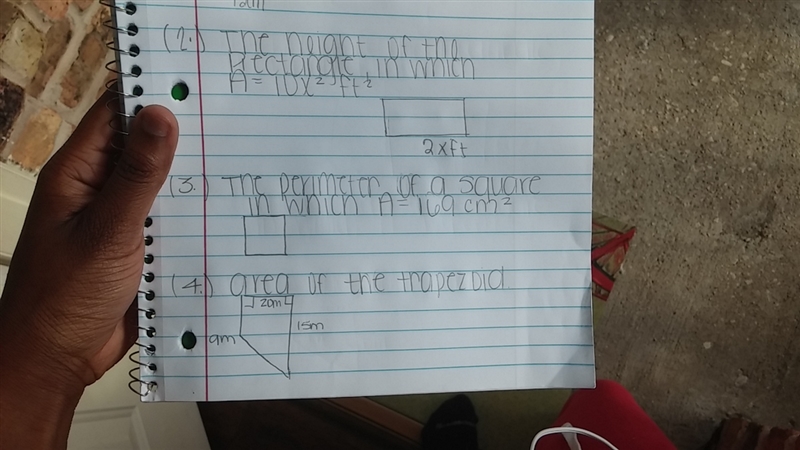 12m
(2.) The height of the
Rectangle, in which
A = 10x² ft²
2x ft
(3.) The perimeter of a square
in which A = 169 cm²
(4.) area of the trapezoid
20m
15m
9m